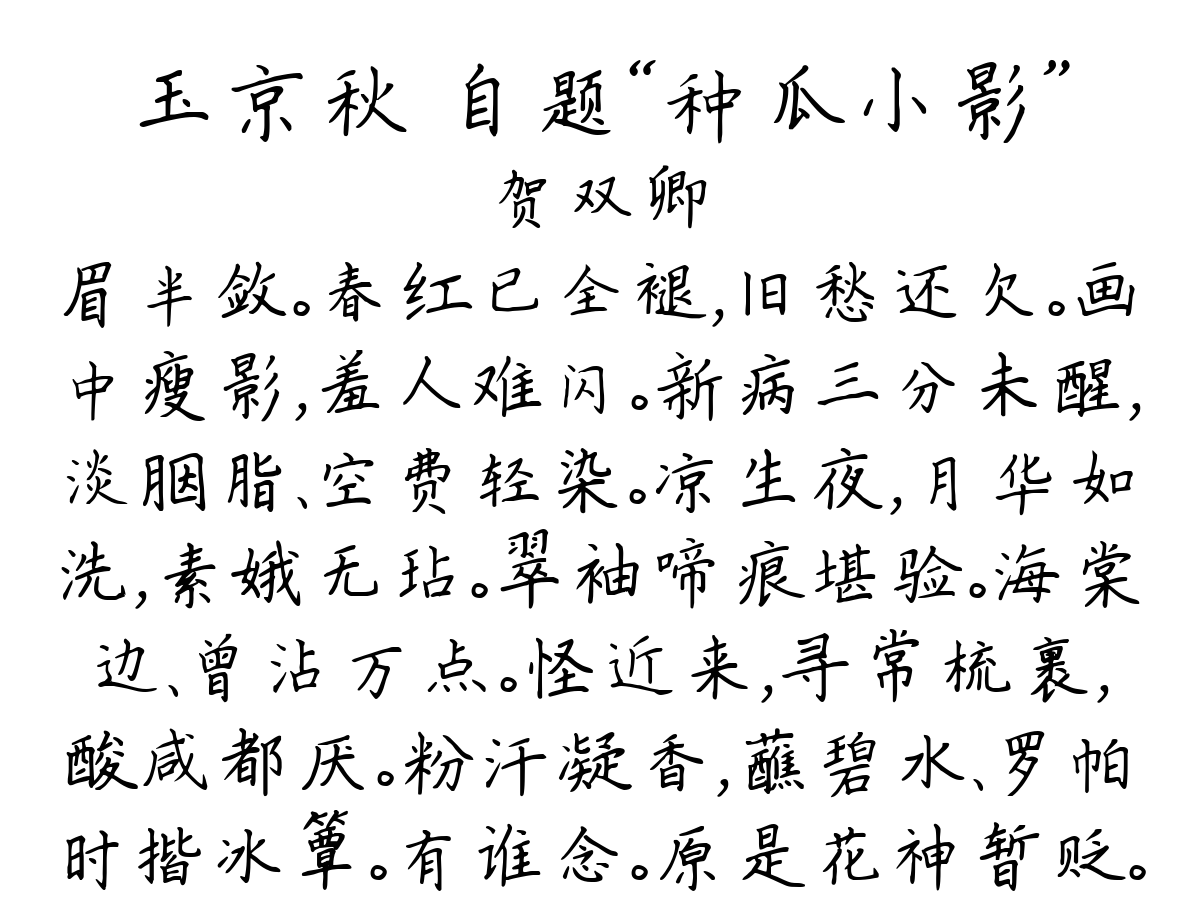 玉京秋 自题“种瓜小影”
贺双卿
眉半敛。春红已全褪,旧愁还欠。画
中瘦影,羞人难闪。新病三分未醒,
淡胭脂、空费轻染。凉生夜,月华如
洗,素娥无玷。翠袖啼痕堪验。海棠
边、曾沾万点。怪近来,寻常梳裹,
酸咸都厌。粉汗凝香,蘸碧水、罗帕
时揩冰簟。有谁念。原是花神暂贬。